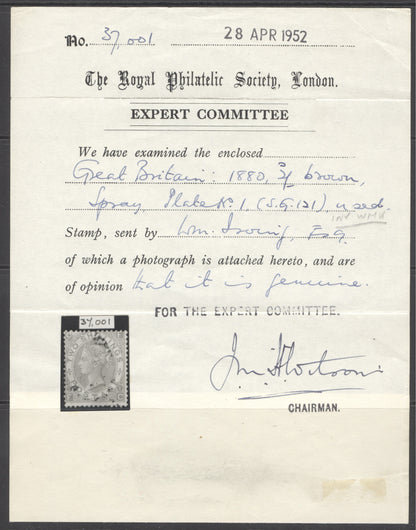 No. 37,001 28 APR 1952
The Royal Philatelic Society, London.
EXPERT COMMITTEE
We have examined the enclosed
Great Britain: 1880, 2/- brown,
Spray, Plate No. 1 (S.G. 121) used.
INV WMK
Stamp, sent by Wm. Irving, Esq.
of which a photograph is attached hereto, and are
of opinion that it is genuine.
FOR THE EXPERT COMMITTEE.
CHAIRMAN.
37,001